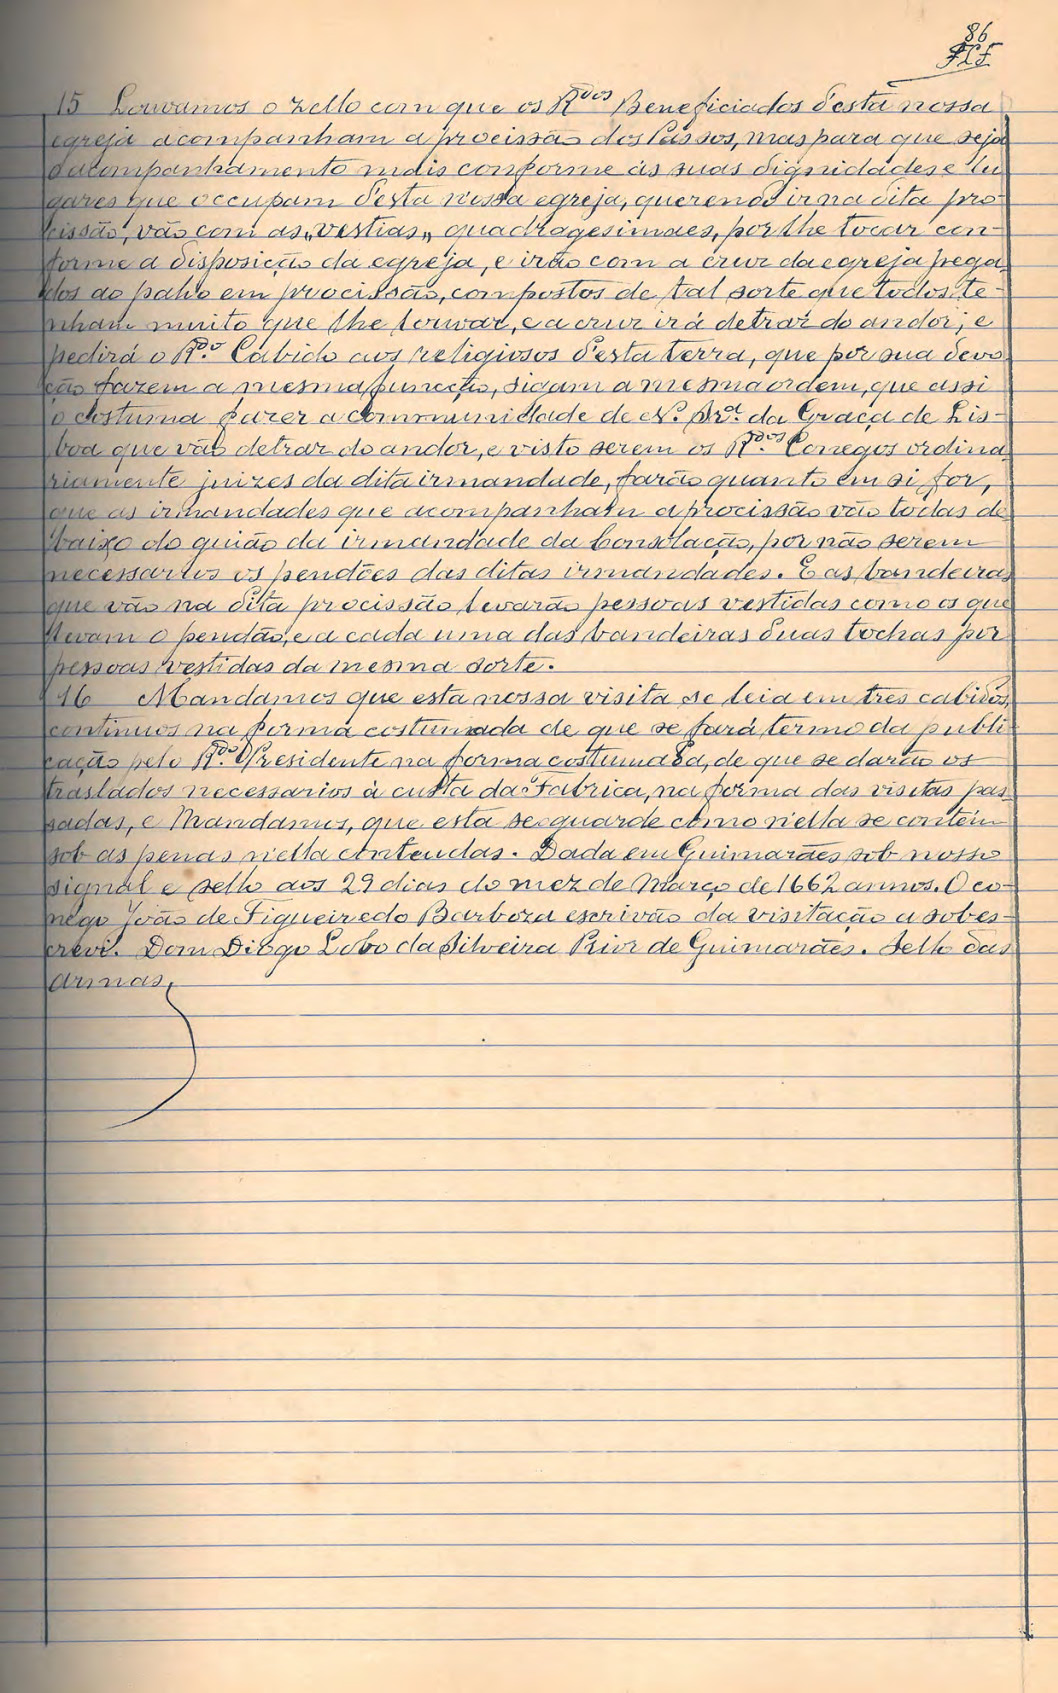 86
15 Louvamos o zello com que os R.dos Beneficiados d'esta nossa
egreja acompanham a procissão dos Passos, mas para que seja
o acompanhamento mais conforme ás suas dignidades e lu-
gares que occupam d'esta nossa egreja, querendo ir na dita pro-
cissão, vão com as "vestias" quadragesimaes, por lhe tocar con-
forme a disposição da egreja, e irão com a cruz da egreja pega-
dos ao palio em procissão, compostos de tal sorte que todos te-
nham muito que lhe louvar, e a cruz irá detraz do andor; e
pedirá o R.do Cabido aos religiosos d'esta terra, que por sua devo-
ção fazem a mesma funcção, sigam a mesma ordem, que assi
o costuma fazer a communidade de N.ª Sr.ª da Graça de Lis-
boa que vão detraz do andor, e visto serem os R.dos Conegos ordina-
riamente juizes da dita irmandade, farão quanto em si for,
que as irmandades que acompanham a procissão vão todas de-
baixo do guião da irmandade da Consolação, por não serem
necessarios os pendões das ditas irmandades. E as bandeiras
que vão na dita procissão levarão pessoas vestidas como os que
levam o pendão, e a cada uma das bandeiras duas tochas por
pessoas vestidas da mesma sorte.
16 Mandamos que esta nossa visita se leia em tres cabidos
continuos na forma costumada de que se fará termo da publi-
cação pelo R.do Presidente na forma costumada, de que se darão os
traslados necessarios à custa da Fabrica, na forma das visitas pas-
sadas, e Mandamos, que esta se guarde como n'ella se contém
sob as penas n'ella conteudas. Dada em Guimarães sob nosso
signal e sello aos 29 dias do mez de Março de 1662 annos. O co-
nego João de Figueiredo Barboza escrivão da visitação a sobes-
crevi. Dom Diogo Lobo da Silveira Prior de Guimarães. Sello das
armas,